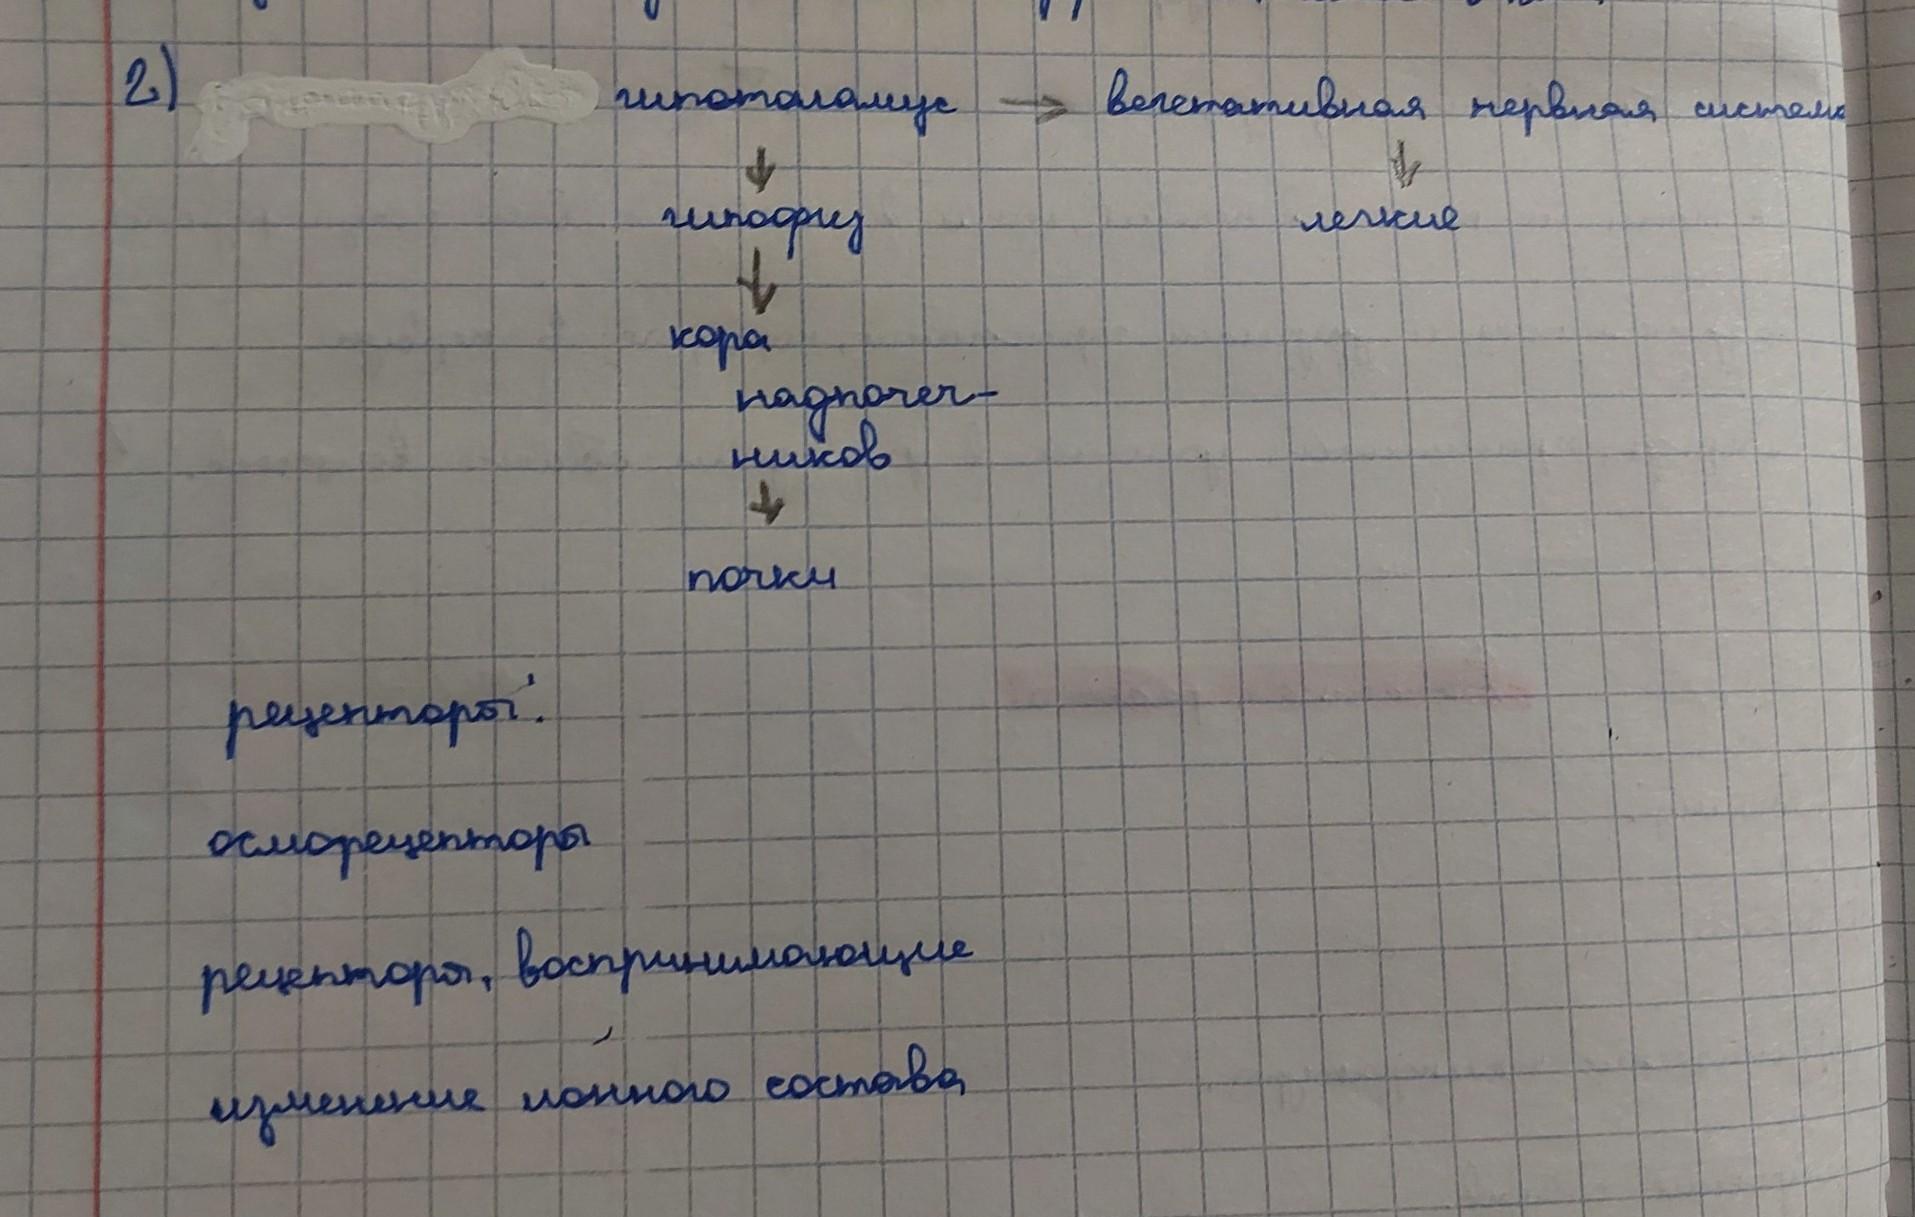 2) гипоталамус → вегетативная нервная система
↓ ↓
гипофиз легкие
↓
кора
надпочеч-
ников
↓
почки
рецепторы:
осморецепторы
рецепторы, воспринимающие
изменение ионного состава